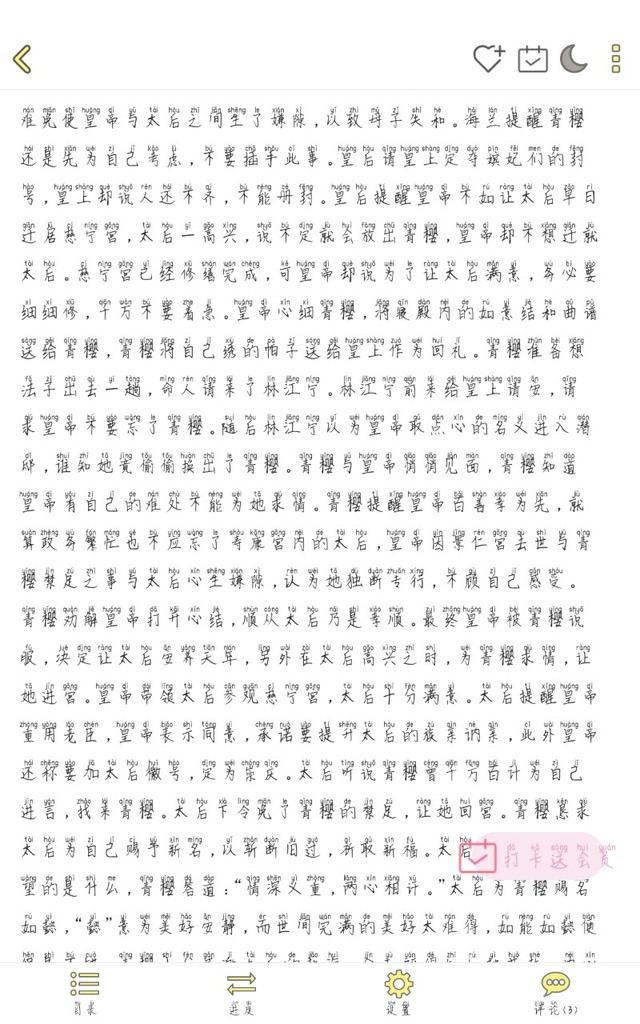 难免使皇帝与太后之间生了嫌隙，以致母子失和。海兰提醒青樱
还是先为自己考虑，不要插手此事。皇后请皇上定夺嫔妃们的封
号，皇上却说人还不齐，不能册封。皇后提醒皇帝不如让太后早日
迁居慈宁宫，太后一高兴，说不定就会放出青樱，皇帝却不想迁就
太后。慈宁宫已经修缮完成，可皇帝却说为了让太后满意，务必要
细细修，千万不要着急。皇帝心细青樱，将寝殿内的如意结和曲谱
送给青樱，青樱将自己绣的帕子送给皇上作为回礼。青樱准备想
法子出去一趟，命人请来了林江宁。林江宁前来给皇上请安，请
求皇帝不要忘了青樱。随后林江宁以为皇帝取点心的名义进入潜
邸，谁知她竟偷偷换出了青樱。青樱与皇帝悄悄见面，青樱知道
皇帝有自己的难处不能为她求情。青樱提醒皇帝百善孝为先，就
算政务繁忙也不应忘了寿康宫内的太后，皇帝因景仁宫去世与青
樱禁足之事与太后心生嫌隙，认为她独断专行，不顾自己感受。
青樱劝解皇帝打开心结，顺从太后乃是孝顺。最终皇帝被青樱说
服，决定让太后安养天年，另外在太后高兴之时，为青樱求情，让
她进宫。皇帝带领太后参观慈宁宫，太后十分满意。太后提醒皇帝
重用老臣，皇帝表示同意，承诺要提升太后的族亲讷亲，此外皇帝
还称要加太后徽号，定为崇庆。太后听说青樱曾千方百计为自己
进言，找来青樱。太后下令免了青樱的禁足，让她回宫。青樱恳求
太后为自己赐予新名，以斩断旧过，祈取新福。太后
望的是什么，青樱答道：“情深义重，两心相计。”太后为青樱赐名
如懿，“懿”意为美好安静，而世间完满的美好太难得，如能如懿便
打卡送会员
目录
进度
设置
评论(3)